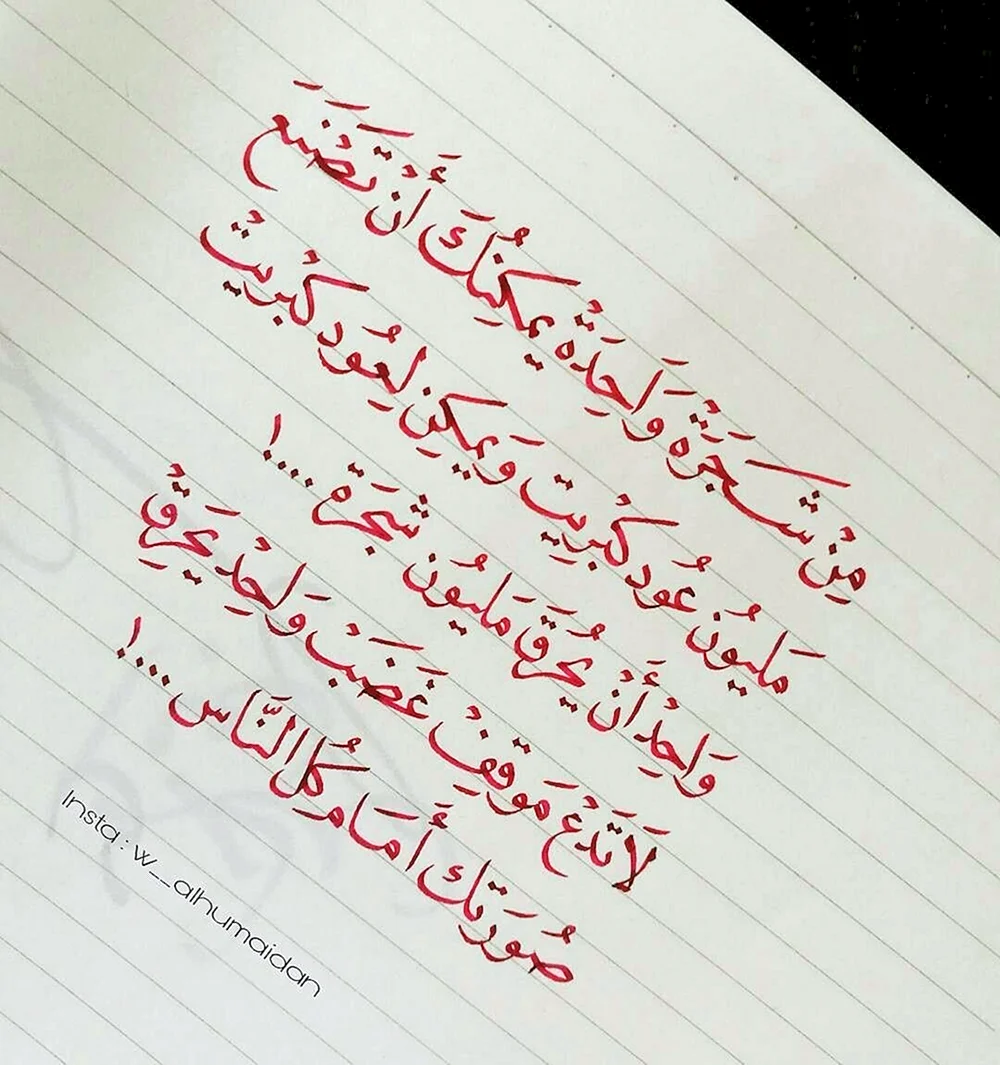 مِنْ شَجَرَةٍ وَاحِدَةٍ يمكِنُكَ أَنْ تَصْنَعَ
مَليُونَ عُود كبْرِيت وَيمكِن لِعُود كبْرِيتْ
وَاحِدْ أَنْ يُحْرِقَ مَليُونَ شجَرَة ....!
لَا تَدَعْ مَوقِفْ غَضَبْ وَاحِدْ يَحْرِقْ
صُورَتك أَمَام كُل النَّاس ....!
Insta : w__alhumaidan